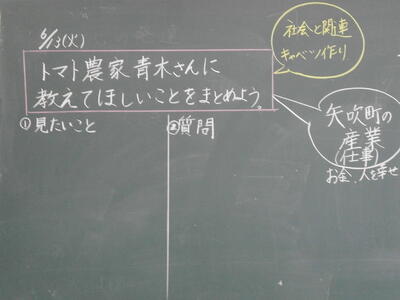 6/13(火)
トマト農家 青木さんに
教えてほしいことをまとめよう。
社会と関連
キャベツ作り
矢吹町の
産業
(仕事)
お金、人を幸せ
①見たいこと
②質問